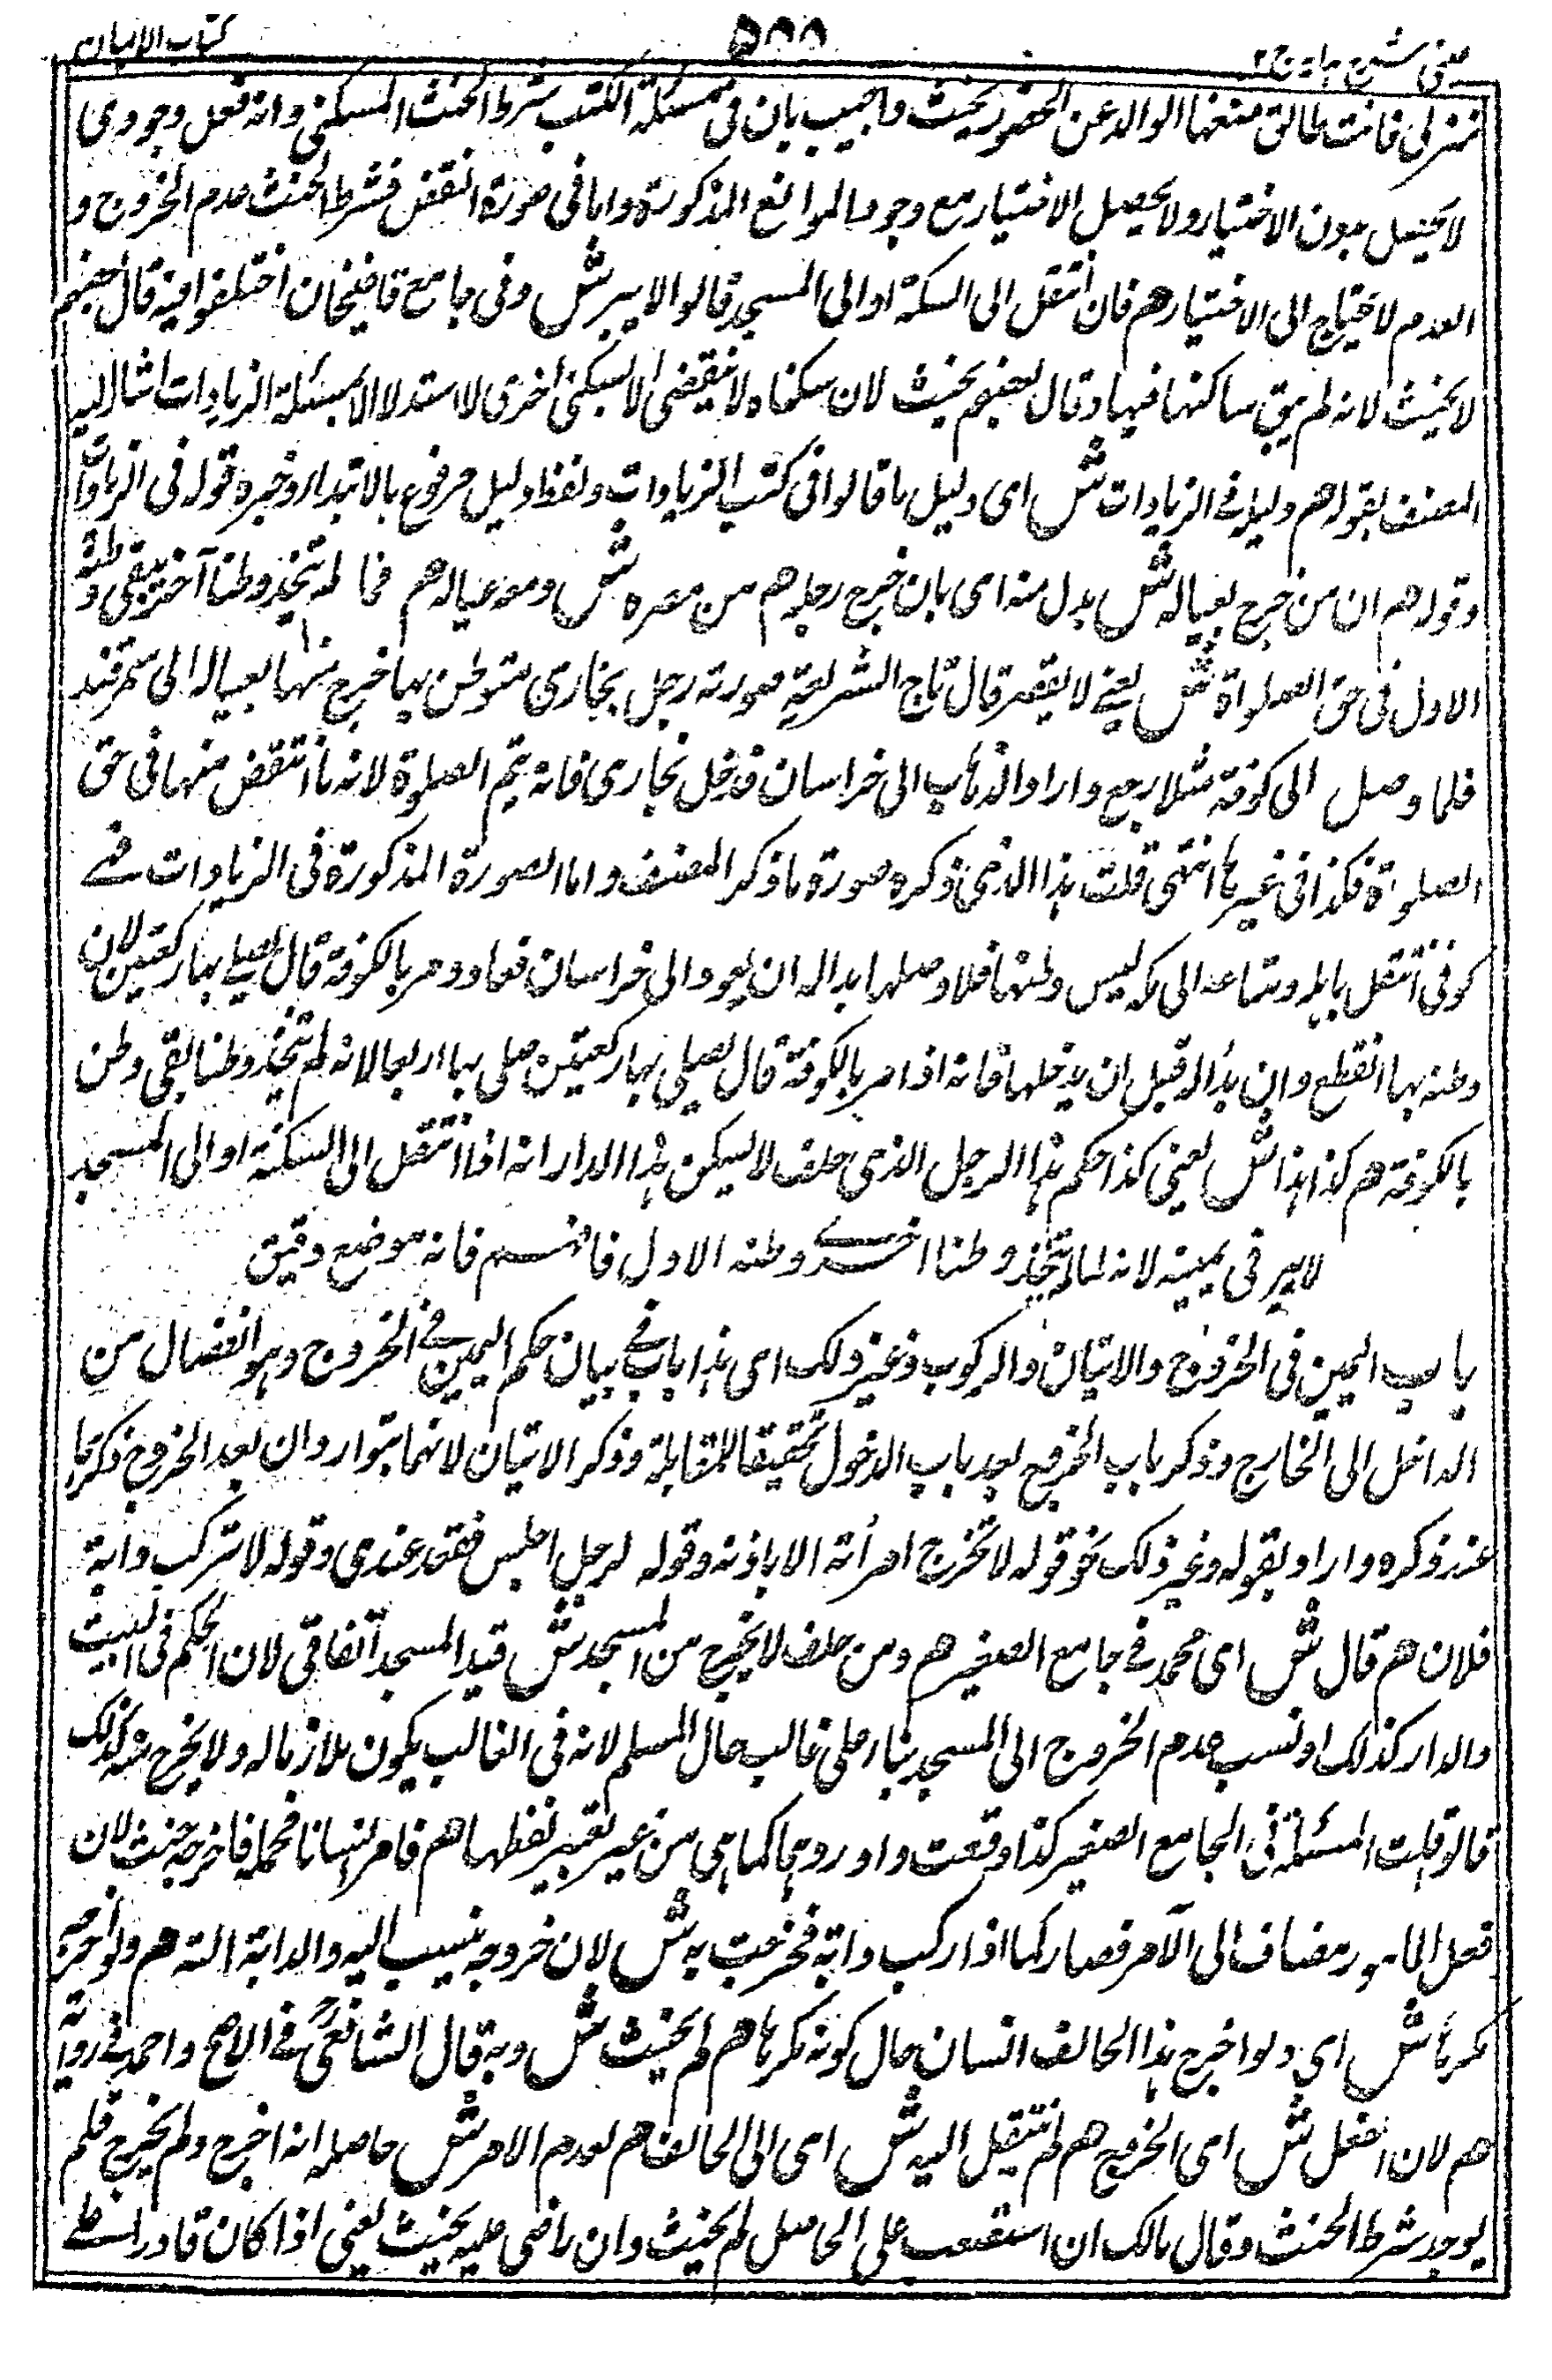 عینی شرح ہدایہ ج ۲
۵۸۸
کتاب الایمان
منزلی فانت طالق منعها الوالد عن الحضور یحنث واجیب بان فی مسئلة الکتب شرط الحنث المسکنی وانه فعل وجودی
لا یحصل بدون الاختیار ولا یحصل الاختیار مع وجود الموانع المذکورة واما فی صورة النقض فشرط الحنث عدم الخروج و
العدم لا یحتاج الی الاختیار هم فان انتقل الی السکة او الی المسجد قالوا لا یبر ش وفی جامع قاضیخان اختلفوا فیه قال بعضهم
لا یحنث لانه لم یبق ساکنها فیها وقال بعضهم یحنث لان سکناه لا ینقضی الا بسکنی اخری لاستدلالا بمسئلة الزیادات اشار الیه
المصنف بقوله هم دلیله فی الزیادات ش ای دلیل ما قالوا فی کتب الزیادات ولفظ دلیل مرفوع بالابتداء وخبره قوله فی الزیادات
وقوله هم ان من خرج بعیاله ش بدل منه ای بان خرج رجل هم من مصره ش ومعه عیاله هم فما لم یتخذ وطنا آخر یبقی وطنه
الاول فی حق الصلواة ش یعنے لا یقصر قال تاج الشریعة صورته رجل بخاری متوطن بها خرج منها بعیاله الی سمرقند
فلما وصل الی کوفة مثلا رجع واراد الذهاب الی خراسان فدخل بخاری فانه یتم الصلوة لانه ما انتقض منها فی حق
الصلوة فکذا فی غیرها انتهی قلت هذا الذی ذکره صورة ما ذکر المصنف واما الصورة المذکورة فی الزیادات فے
کوفی انتقل باهله ومتاعه الی مکه لیس وطنها فلما وصلها بدا له ان یعود الی خراسان فعاد ومر بالکوفة قال یصلے بها رکعتین لان
وطنه بها انقطع وان بدا له قبل ان یدخلها فانه اذا مر بالکوفة قال یصلی بها رکعتین صلی بها اربعا لانه لم یتخذ وطنا بقی وطن
بالکوفة هم کذا هذا ش یعنی کذا حکم هذا الرجل الذی حلف لا یسکن هذا الدار انه اذا انتقل الی السکة او الی المسجد
لا یبر فی یمینه لانه لما لم یتخذ وطنا اخرے وطنه الاول فافهم فانه موضع دقیق
باب الیمین فی الخروج والاتیان والرکوب وغیر ذلک ای هذا باب فے بیان حکم الیمین فے الخروج وهو انفصال من
الداخل الی الخارج وذکر باب الخروج بعد باب الدخول تحقیقا للمقابلة وذکر الاتیان لانهما یتواردان بعد الخروج ذکرهما
عند ذکره واراد بقوله وغیر ذلک نحو قوله لا تخرج امرأته الا باذنه وقوله لرجل اجلس فتغد عندی وقوله لا ترکب دابة
فلان هم قال ش ای محمد فے جامع الصغیر هم ومن حلف لا یخرج من المسجد ش قید المسجد اتفاقی لان الحکم فی البیت
والدار کذلک او نسب عدم الخروج الی المسجد بناء علی غالب حال المسلم لانه فی الغالب یکون ملازما له ولا یخرج منه کذلک
قالوا قلت المسئلة فی الجامع الصغیر کذا وقعت واوردتها کما هی من غیر تغییر لفظها هم فامر انسانا فحمله فاخرجه حنث لان
فعل المامور مضاف الی الآمر فصار کما اذا رکب دابة فخرجت به ش لان خروجه ینسب الیه والدابة الته هم ولو اخرجه
مکرها ش ای ولو اخرج هذا الحالف انسان حال کونه مکرها هم لم یحنث ش وبه قال الشافعیؒ فے الاصح واحمد فے روایة
هم لان الفعل ش ای الخروج هم لم ینتقل الیه ش ای الی الحالف هم لعدم الامر ش حاصله انه اخرج ولم یخرج فلم
یوجد شرط الحنث وقال مالک ان استصعب علی الحامل لم یحنث وان رضی علیه یحنث یعنی اذا کان قادرا علے